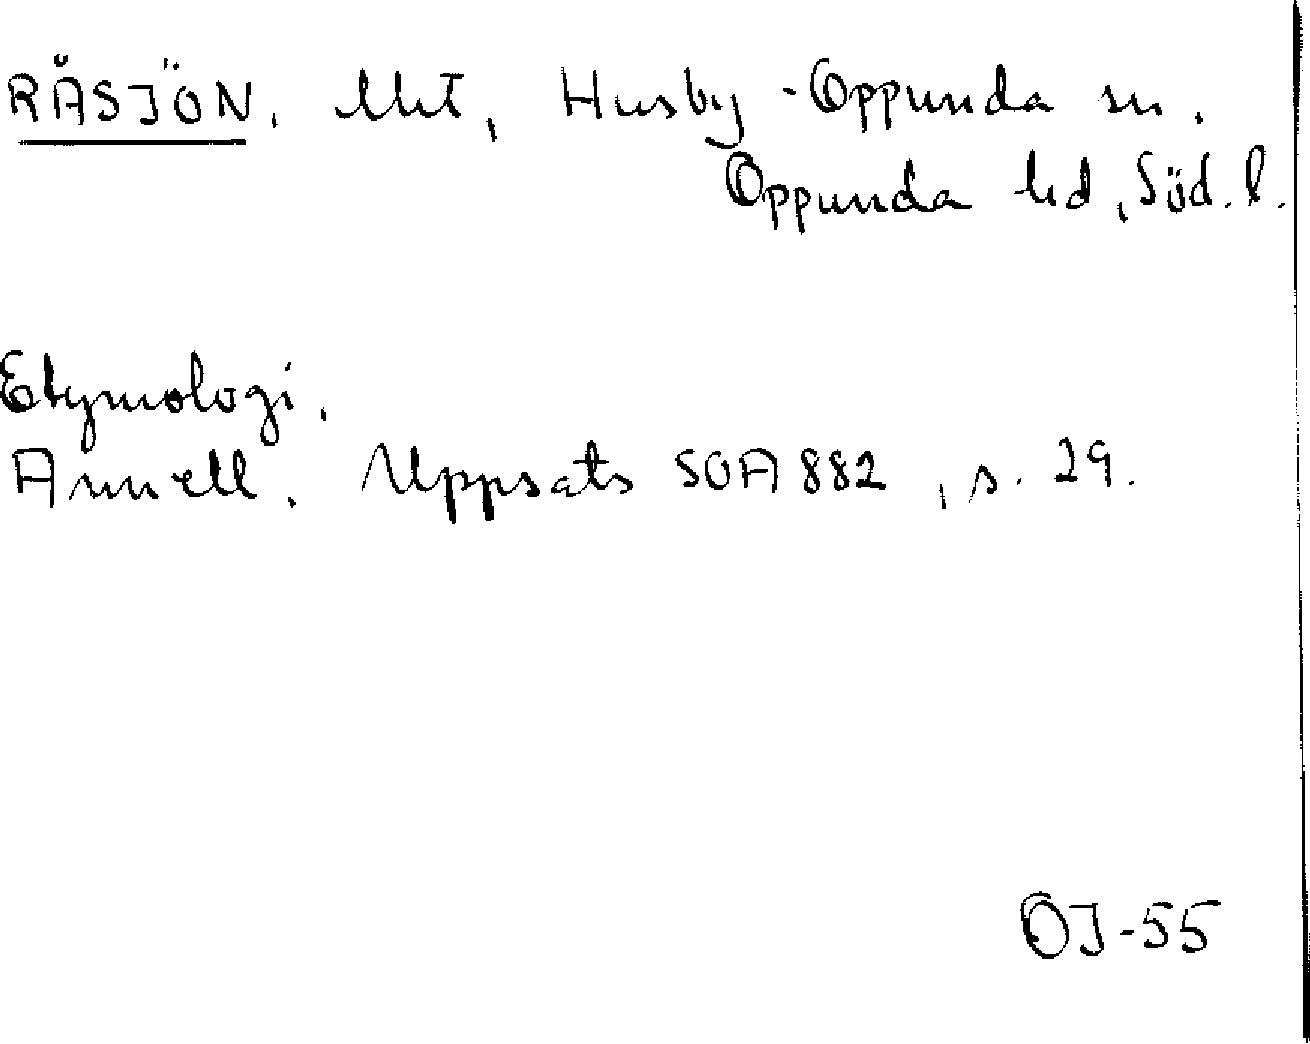 RÅSJÖN, Husby-Oppunda sn.
Oppunda hd, Söd. l.
Etymologi.
Annell. Uppsats SOA 882, s. 29.
OJ-55